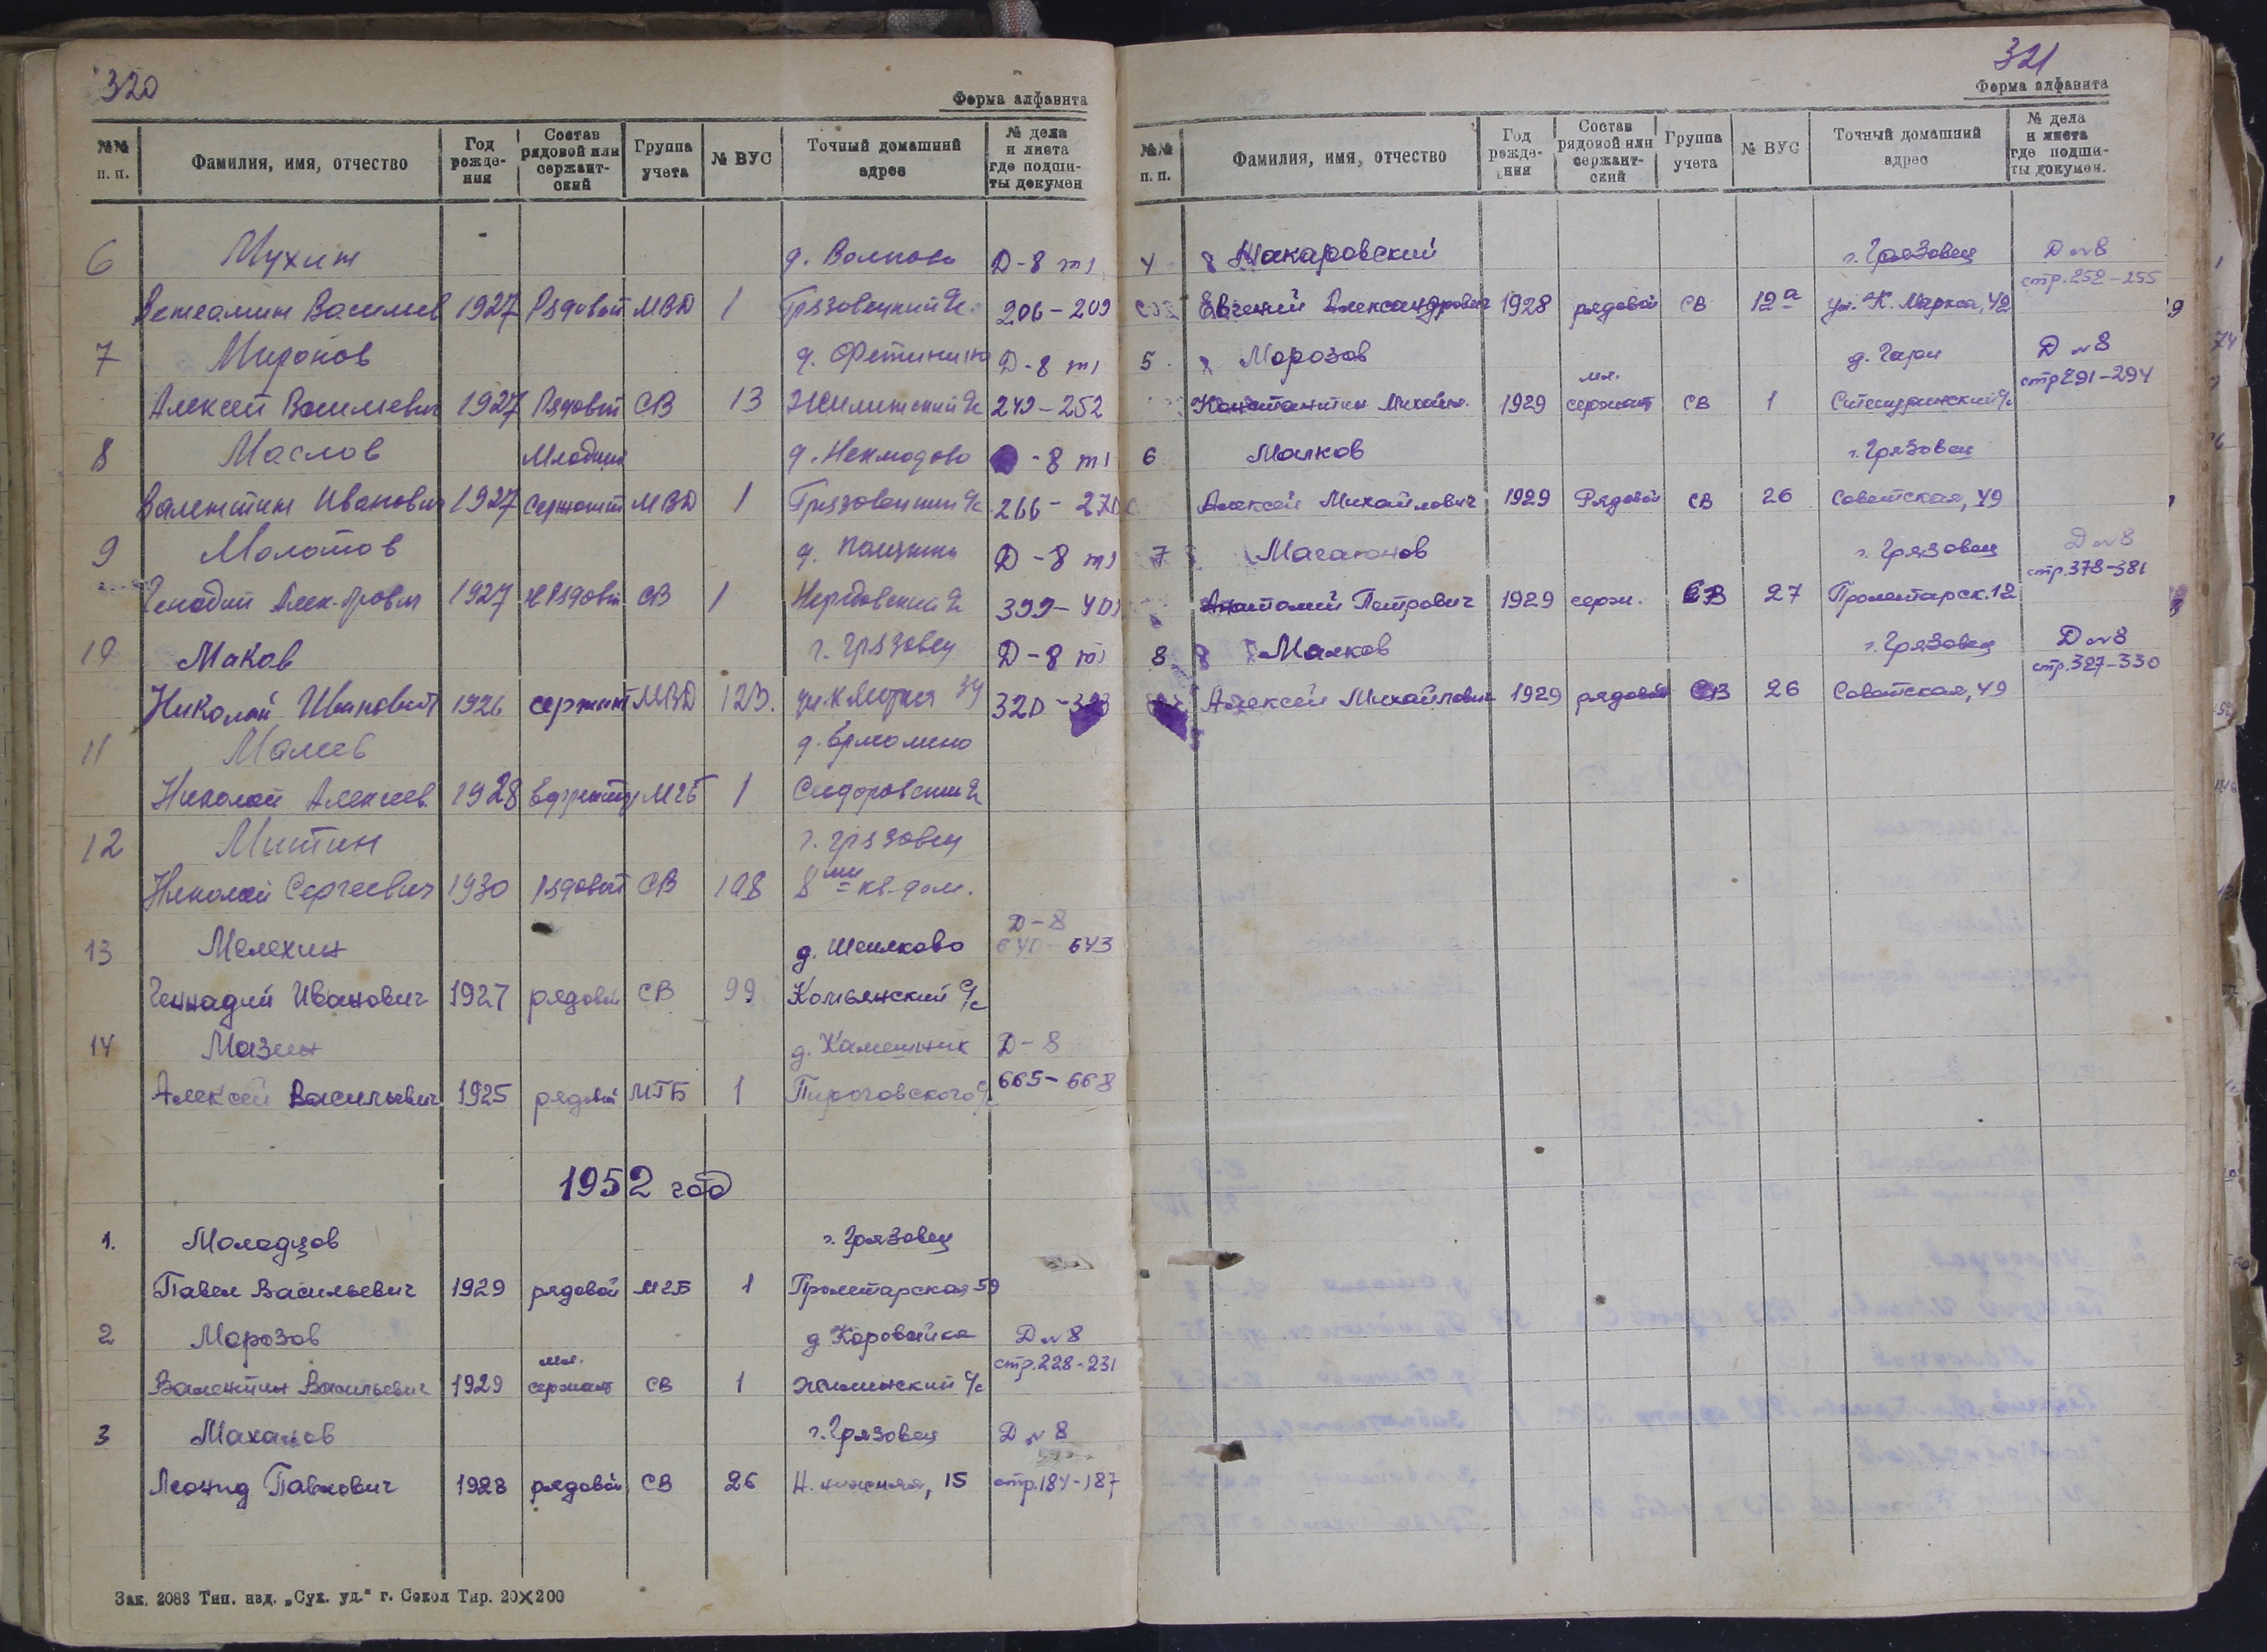 320
Форма алфавита
№№ п. п. Фамилия, имя, отчество Год рожде- ния Состав рядовой или сержант- ский Группа учета № ВУС Точный домашний адрес № дела и листа где подши- ты докумен
6 Мухин д. Волково Д-8 т1
Вениамин Васильев 1927 Рядовой МВД 1 Грязовецкий с/с 206-209
7 Миронов д. Фетинино Д-8 т1
Алексей Васильевич 1927 Рядовой СВ 13 Жилинский с/с 249-252
8 Маслов Младший д. Неклюдово -8 т1
Валентин Иванович 1927 Сержант МВД 1 Грязовецкий с/с 266-270
9 Молотов д. Д-8 т1
Генадий Алек-дрович 1927 Рядовой СВ 1 с/с 399-401
10 Маков г. Грязовец Д-8 т1
Николай Иванович 1926 сержант МВД 123. ул. К Маркса 34 320-323
11 Малев д.
Николай Алексеев. 1928 Ефрейтор МГБ 1 Сидоровский с/с
12 Митин г. Грязовец
Николай Сергеевич 1930 Рядовой СВ 108 8ми кв. дом.
13 Мелехин д. Шеилково Д-8 640-643
Геннадий Иванович 1927 рядовой СВ 99 Комьянский с/с
14 Мазин д. Камешник Д-8
Алексей Васильевич 1925 рядовой МГБ 1 Пироговского с/с 665-668
1952 год
1. Молодцов г. Грязовец
Павел Васильевич 1929 рядовой МГБ 1 Пролетарская 59
2 Морозов д Коровайка Д №8
Валентин Васильевич 1929 мл. сержант СВ 1 Жилинский с/с стр. 228-231
3 Маханов г. Грязовец Д №8
Леонид Павлович 1928 рядовой СВ 26 Н. нижняя, 15 стр. 184-187
Зак. 2083 Тип. изд. „Сух. уд.“ г. Сокол Тир. 20×200
321
Форма алфавита
№№ п. п. Фамилия, имя, отчество Год рожде- ния Состав рядовой или сержант- ский Группа учета № ВУС Точный домашний адрес № дела и листа где подши- ты докумен.
4 Макаровский г. Грязовец Д №8
Евгений Александрович 1928 рядовой СВ 12а ул. К. Маркса, 42 стр. 252-255
5 Морозов д. Гари Д №8
Константин Михайл. 1929 мл. сержант СВ 1 с/с стр 291-294
6 Малков г. Грязовец
Алексей Михайлович 1929 Рядовой СВ 26 Советская, 49
7 Магаюнов г. Грязовец Д №8
Анатолий Петрович 1929 серж. СВ 27 Пролетарск. 12 стр. 378-381
8 Малков г. Грязовец Д №8
Алексей Михайлович 1929 рядовой СВ 26 Советская, 49 стр. 327-330